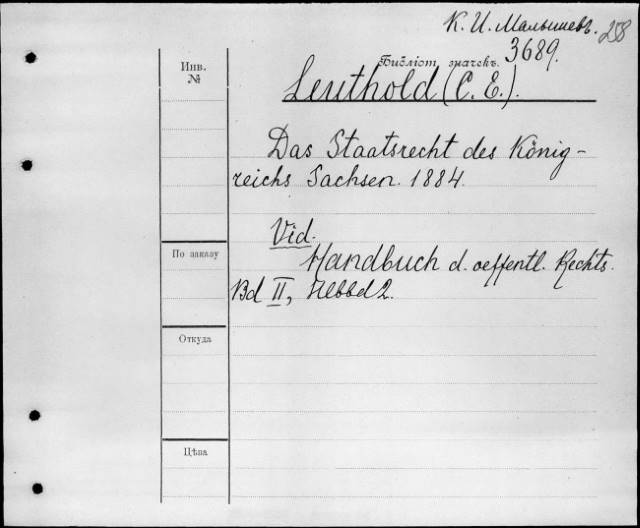 К. И. Малышевъ. 258
Библіот. значекъ. 3689.
Инв.
№
Leuthold (C. E.).
Das Staatsrecht des König-
reichs Sachsen. 1884.
Vid.
По заказу
Handbuch d. oeffentl. Rechts.
Bd II, Hlbbd 2.
Откуда
Цѣва